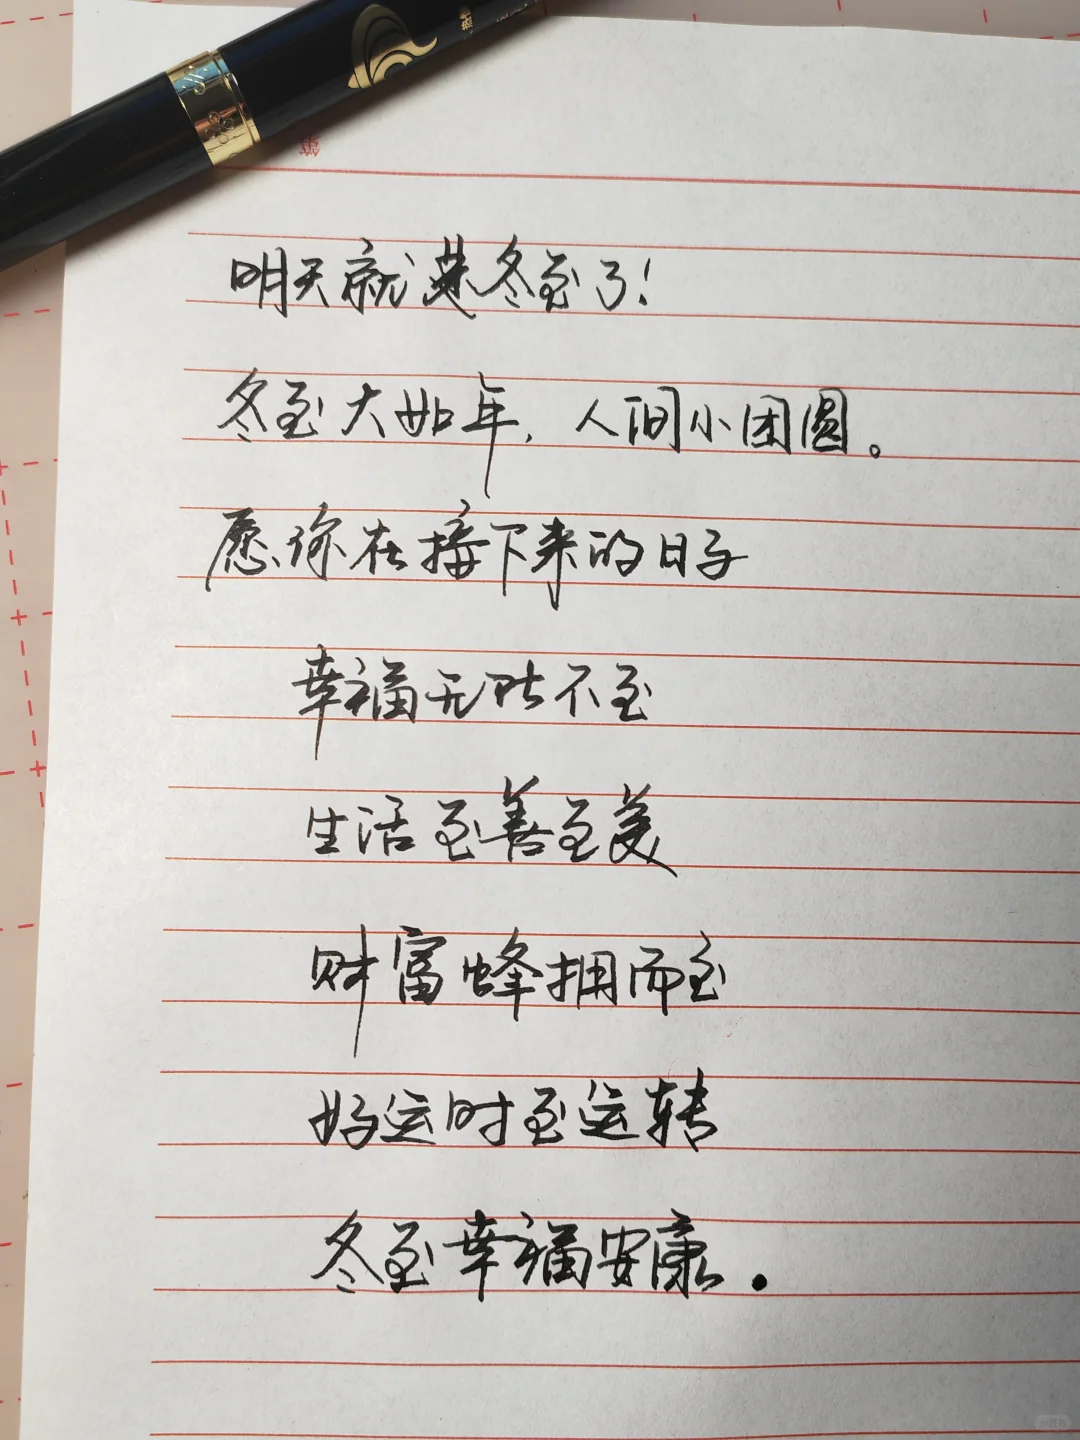 明天就是冬至了!
冬至大如年,人间小团圆。
愿你在接下来的日子
幸福无所不至
生活至善至美
财富蜂拥而至
好运时至运转
冬至幸福安康.
小红书